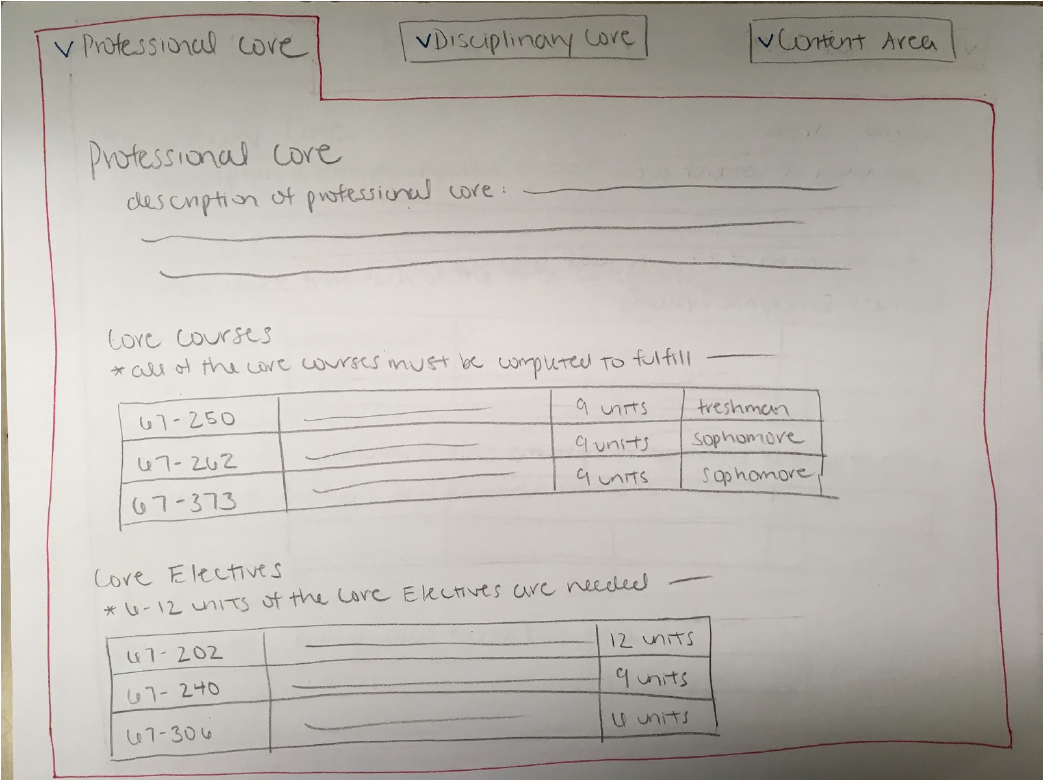 v Professional core
v Disciplinary Core
v Content Area
Professional core
description of professional core:
Core Courses
* all of the core courses must be computed to fulfill
67-250 9 units freshman
67-262 9 units sophomore
67-373 9 units sophomore
Core Electives
* 6-12 units of the Core Electives are needed
67-202 12 units
67-240 9 units
67-306 6 units